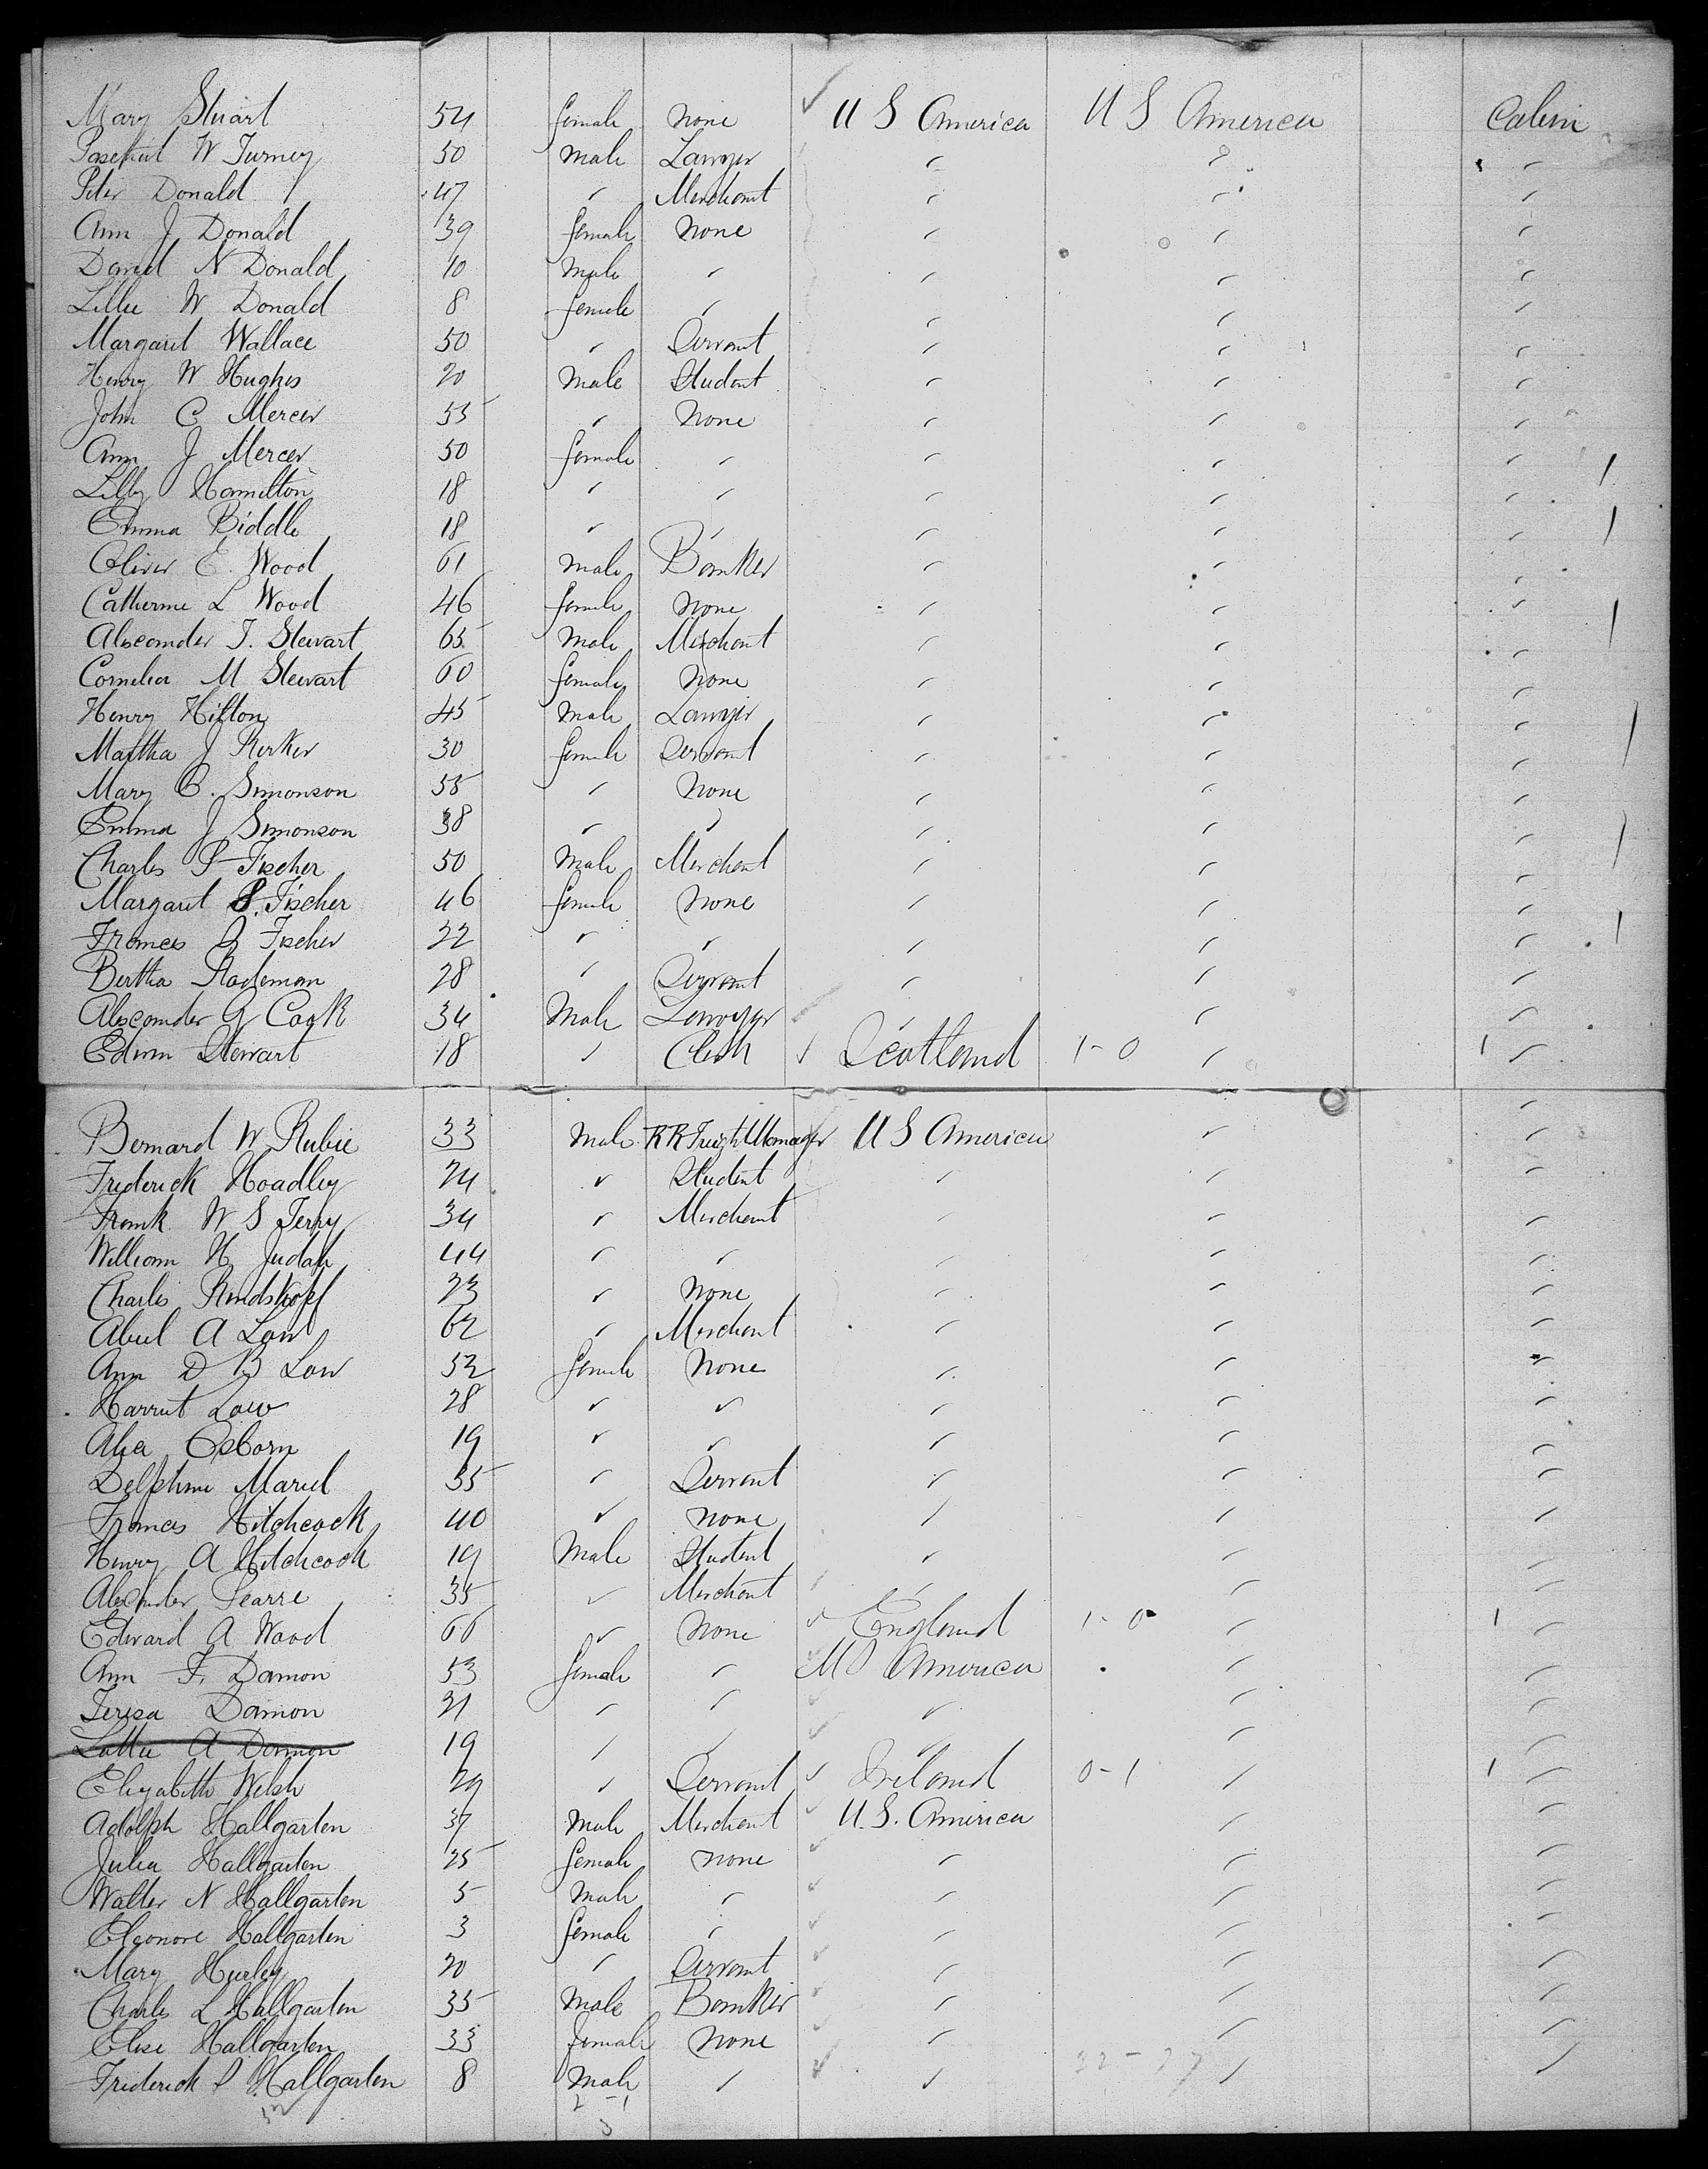 Mary Stuart 54 female none ✓ U S America U S America Cabin
W Turney 50 male Lawyer " " "
Peter Donald 47 " Merchant " " "
Ann J Donald 39 female none " " "
David N Donald 10 male " " " "
Lillie W Donald 8 female " " " "
Margaret Wallace 50 " Servant " " "
Henry W Hughes 20 male Student " " "
John C Mercer 55 " none " " "
Ann J Mercer 50 female " " " "
Lilly Hamilton 18 " " " " "
Emma Biddle 18 " " " " "
Oliver E. Wood 61 male Banker " " "
Catherine L Wood 46 female none " " "
Alexander T. Stewart 65 male Merchant " " "
Cornelia M Stewart 60 female none " " "
Henry Hilton 45 male Lawyer " " "
Martha J 30 female Servant " " "
Mary C. Simonson 55 " none " " "
Emma J Simonson 38 " " " " "
Charles P Fischer 50 male Merchant " " "
Margaret S. Fischer 46 female none " " "
Frances Fischer 22 " " " " "
Bertha 28 " Servant " " "
Alexander G Cook 34 male Lawyer " " "
Edwin Stewart 18 " Clerk ✓ Scotland 1-0 " 1 "
Bernard W Rubie 33 male RR Freight Manager U S America " "
Frederick Hoadley 24 " Student " " "
Frank W S Terry 34 " Merchant " " "
William H Judah 44 " " " " "
Charles Rindskopf 23 " none " " "
Abiel A Low 62 " Merchant " " "
Ann D B Low 52 female none " " "
Harriet Low 28 " " " " "
Osborn 19 " " " " "
Delphine 35 " Servant " " "
Frances Hitchcock 40 " none " " "
Henry A Hitchcock 19 male Student " " "
Alexander Searre 35 " Merchant " " "
Edward A Wood 66 " none ✓ England 1-0 " 1 "
Ann F. Damon 53 female " U S America " "
Teresa Damon 21 " " " " "
Lottie A Damon 19 " " " " "
Elizabeth Welsh 29 " Servant ✓ Ireland 0-1 " 1 "
Adolph Hallgarten 37 male Merchant U.S. America " "
Julia Hallgarten 25 female none " " "
Walter N Hallgarten 5 male " " " "
Eleonore Hallgarten 3 female " " " "
Mary Hurley 20 " Servant " " "
Charles L Hallgarten 35 male Banker " " "
Elise Hallgarten 33 female none " " "
Frederick Hallgarten 8 male " " "